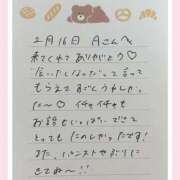 2月16日 Aさんへ
来てくれてありがとう♡
"会いたくなった"って言って
もらえてすごくうれしかっ
た〜♡ イチャイチャも
お話もいっぱいできて
とってもたのしかったです!
また、パンストやぶりに
きてね〜!!